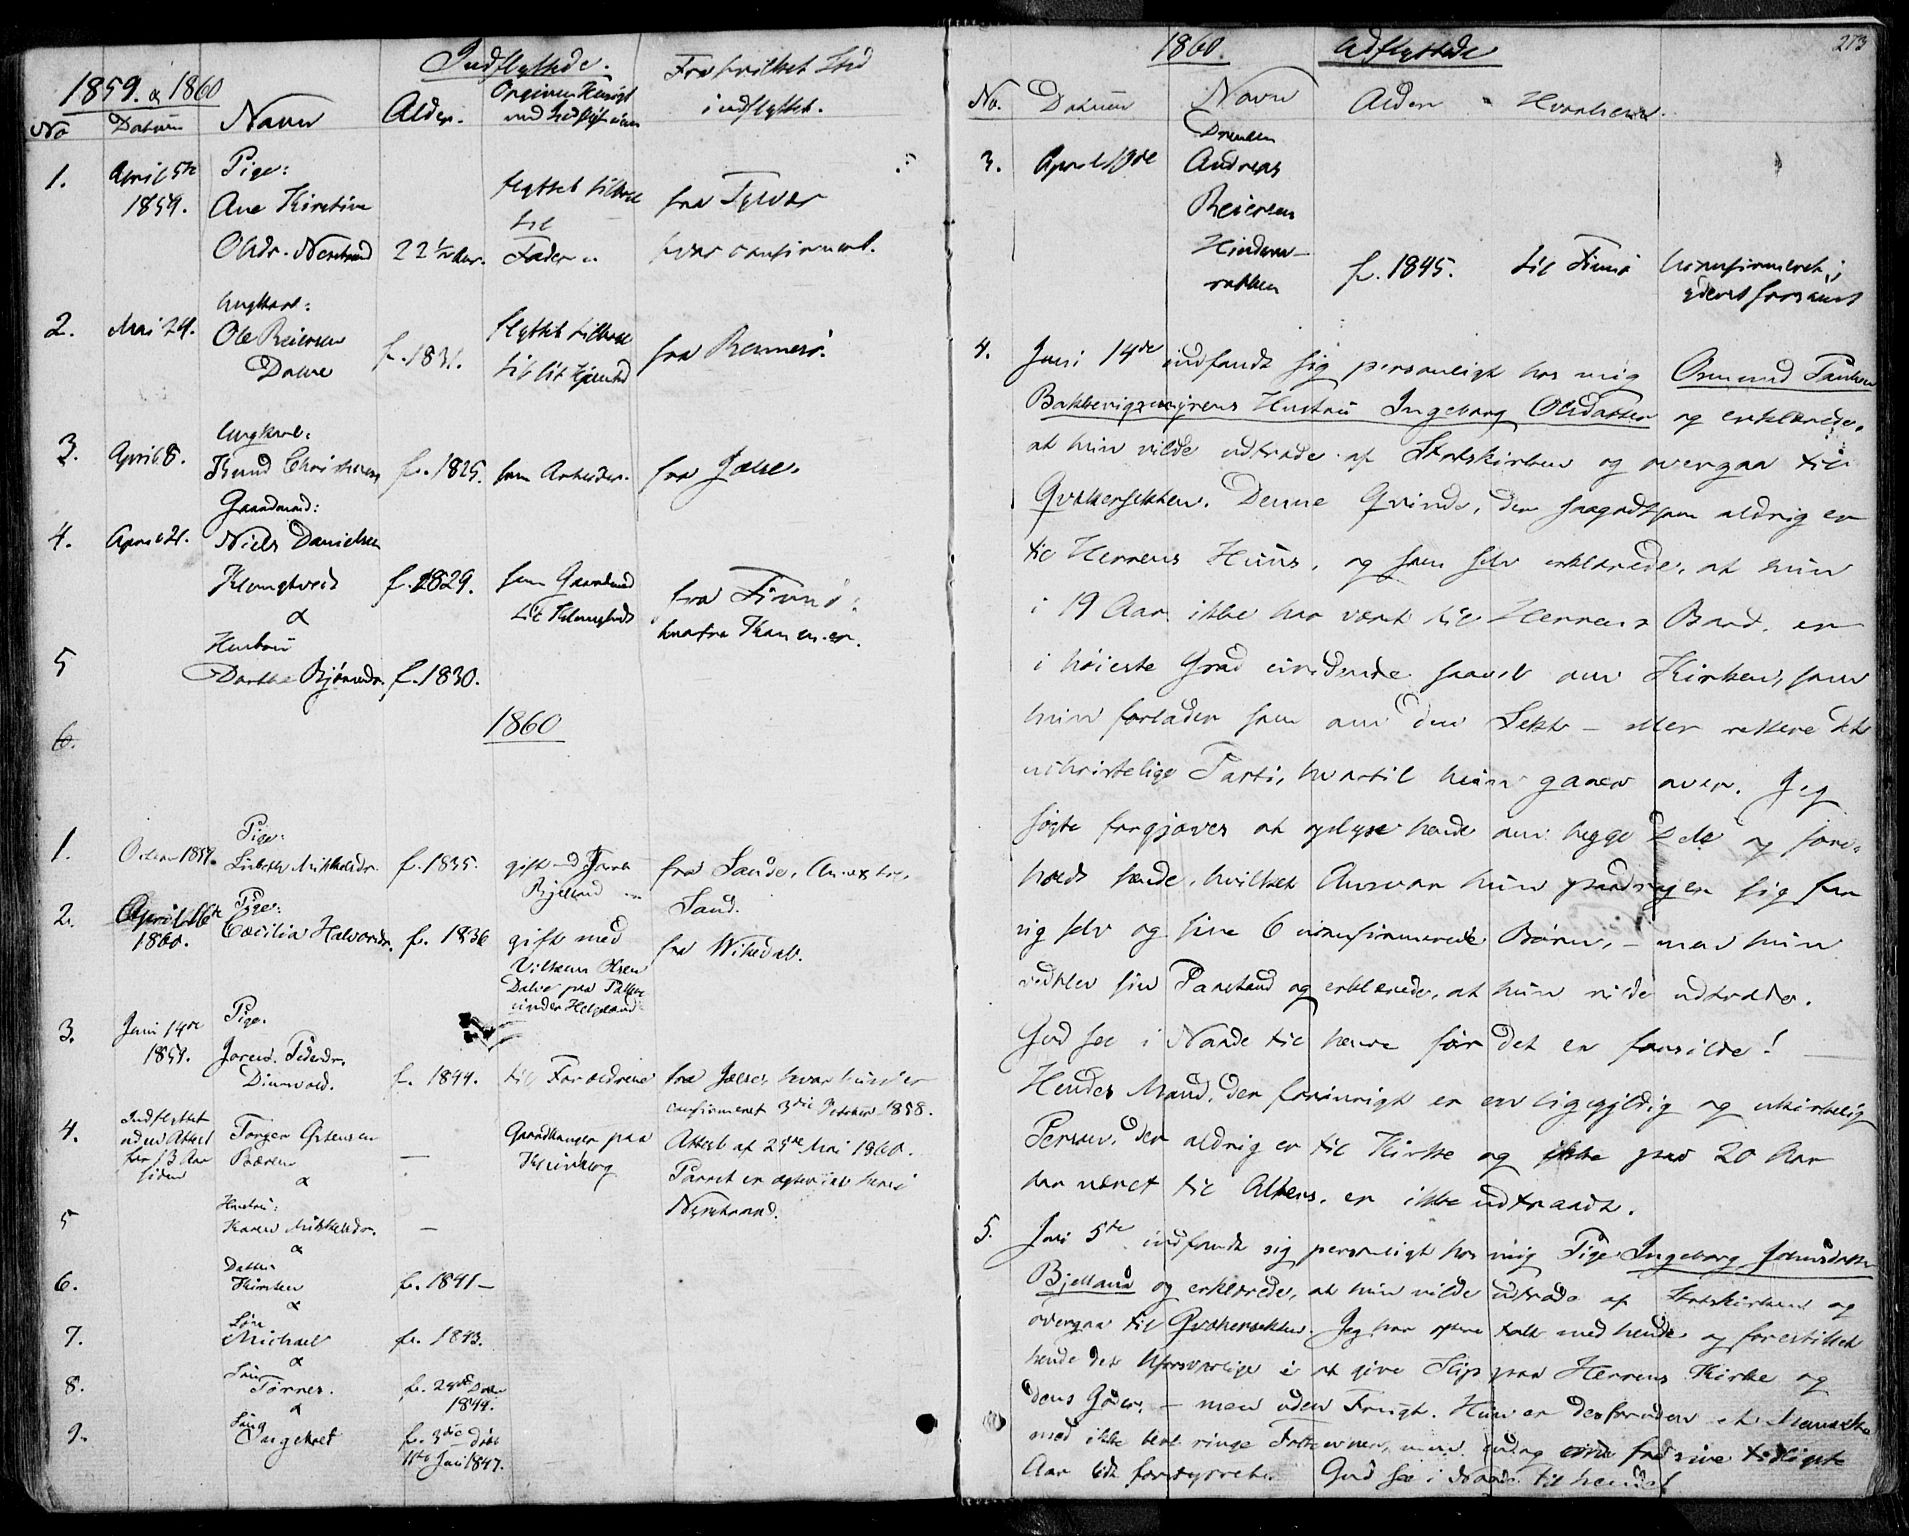 Indflyttede.
1859. & 1860
No Datum Navn Alder. Opgiven Hensigt Fra hvilket Sted
med Indflytningen indflyttet.
1. April 5te Pige:
1859. Ane Kirstine flyttet tilbage fra Tysvær
til
Olsdr. Nerstrand 22½ Aar. Fader hvor confirmert.
Ungkarl:
2. Mai 24. Ole Reiersen flyttet tilbage
f. 1831. til sit Hjemsted fra Rennesø.
Ungkarl:
3. April 8. Knud Christensen f. 1825. som Arbeider. fra Jælse.
Gaardmand:
4. April 21. Niels Danielsen
f. 1829. som Gaardmand fra Finnø:
til hvorfra Konen er.
&
Hustru
5 Dorthe Bjørnsdr. f. 1830.
1860
6.
Pige:
1. October 1859. Lisbeth Mikkelsdr. f. 1835. gift med Jacob fra Sande, Annex til
Bjelland Sand.
Pige:
2. April 16de
1860. Cæcilia Halvorsdr. f. 1836 gift med fra Wikedal.
Villum Olsen
Dalve paa
under Helgeland
3. Juni 14de Pige.
1859. Joren Pedersdr.
f. 1844. til Forældrene fra Jælse, hvor hun er
confirmeret 3die October 1858.
4. Indflyttet
uden Attest Torger Østensen Gaardbruger paa Attest af 25de Mai 1860.
for 13 Aar —
siden & Parret er egteviet her i
Nerstrand.
Hustru:
5 Karen Mikkelsdr. —
&
Datter
6. Kirsten f. 1841 —
&
Søn
7. Michael f. 1843.
&
Søn
8. Tørres. f. 29de
1844.
&
Søn
9. Ingebret f. 3die døbt
11te Juli 1847.
1860. Udflyttede 273
No. Datum Navn Alder Hvorhen.
Drengen
3. April 19de Andreas
Reiersen
f. 1845. til Finnø ukonfirmeret;
4. Juni 14de indfandt sig personligt hos mig Osmund Paulsen
Bakkevigsmyrens Hustru Ingeborg Olsdatter og erklærede,
at hun vilde udtræde af Statskirken og overgaa til
Qvækersekten. Denne Qvinde, der saagodtsom aldrig er
til Herrens Huus, og som selv erklærede, at hun
i 19 Aar ikke har været til Herrens Bord, er
i høieste Grad uvidende saavel om Kirken, som
hun forlader som om den Sekt – eller rettere det
uchristelige Parti, hvortil hun gaaer over. Jeg
søgte forgjæves at oplyse hende om begge Dele og fore-
holdt hende, hvilket Ansvar hun paadrager sig for
sig selv og sine 6 ukonfirmerede Børn, – men hun
vedblev sin Paastand og erklærede, at hun vilde udtræde.
Gud see i Naade til hende før det er forsilde! —
Hendes Mand, der forøvrigt er en ligegyldig og ukirkelig
Person, der aldrig er til Kirke og ikke paa 20 Aar
har været til Alters, er ikke udtraadt.
5. Juli 5te indfandt sig personligt hos mig Pige Ingeborg Johnsdatter
Bjelland og erklærede, at hun vilde udtræde af Statskirken og
overgaa til Qvækersekten. Jeg har ofte talt med hende og forestillet
hende det Uforsvarlige i at give Slip paa Herrens Kirke og
dens Goder, – men uden Frugt. Hun er desforuden et Menneske
med ikke blot ringe Forstand, men endog fra sine tidligste
Aar lidt forstyrret. Gud see i Naade til hende!